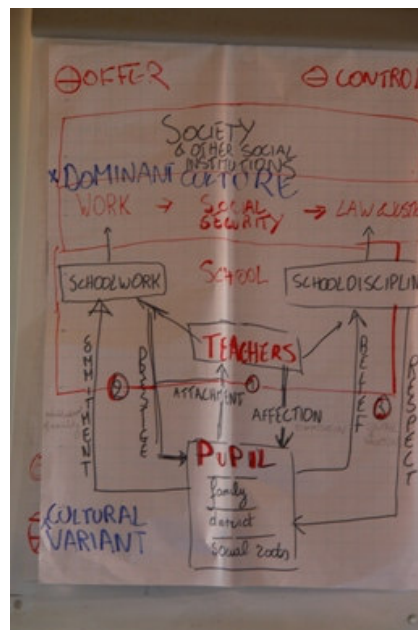 ⊖ OFFER
⊖ CONTROL
SOCIETY
& OTHER SOCIAL
INSTITUTIONS
* DOMINANT CULTURE
WORK → SOCIAL SECURITY → LAW
SCHOOL
SCHOOLWORK
SCHOOLDISCIPLIN
TEACHERS
②
①
③
ATTACHMENT
AFFECTION
PRESTIGE
BELIEF
RESPECT
PUPIL
family
district
social roots
CULTURAL
VARIANT